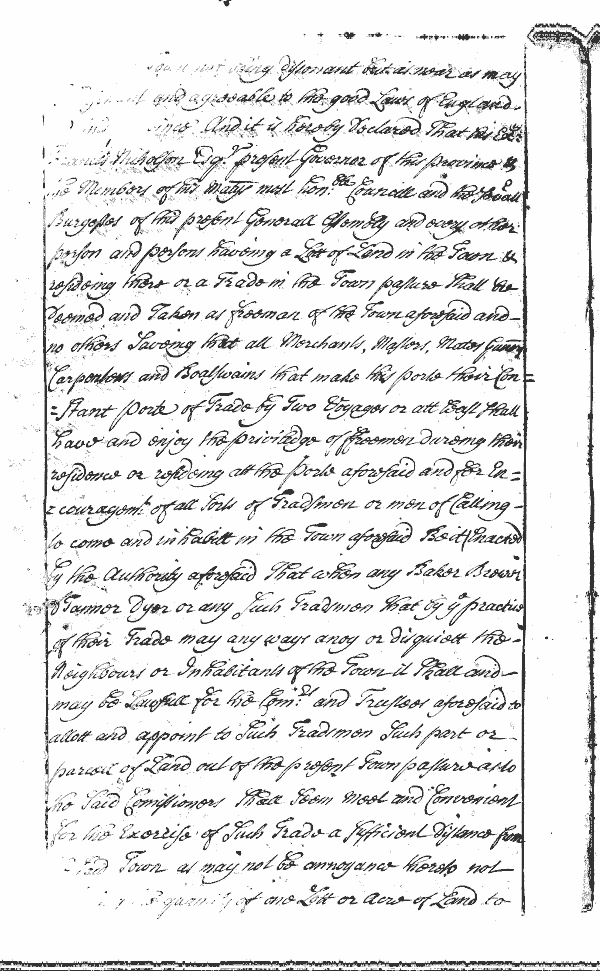 not being dissonant but as near as may
and agreeable to the good Laws of England
And it is hereby Declared That his Ex:cy
Francis Nicholson Esqr present Governor of this province &
the Members of his Matys most hon:ble Councell and the Sevall
Burgesses of this present Generall Assembly and every other
person and persons haveing a Lott of Land in the Town &
resideing there or a Trade in the Town pasture Shall be
deemed and Taken as freeman of the Town aforesaid and
no others Saveing that all Merchants, Masters, Mates Gunrs
Carpenters and Boatswains that make this porte their Con=
=stant porte of Trade by Two Voyages or att least Shall
have and enjoy the priviledge of freemen dureing their
residence or resideing att the porte aforesaid and for En=
=couragemt of all Sorts of Tradsmen or men of Calling
to come and inhabitt in the Town aforesaid Be it Enacted
by the Authority aforesaid That when any Baker Brewer
Tanner Dyer or any Such Tradsmen that by ye practice
of their Trade may any ways anoy or disquiett the
Neighbours or Inhabitants of the Town it Shall and
may be Lawfull for the Com:rs and Trustees aforesaid to
allott and appoint to Such Tradsmen Such part or
parcell of Land out of the present Town pasture as to
the Said Comissioners Shall Seem Meet and Convenient
for the Exercise of Such Trade a Sufficient distance from
Said Town as may not be annoyance thereto not
quantity of one Lott or Acre of Land to